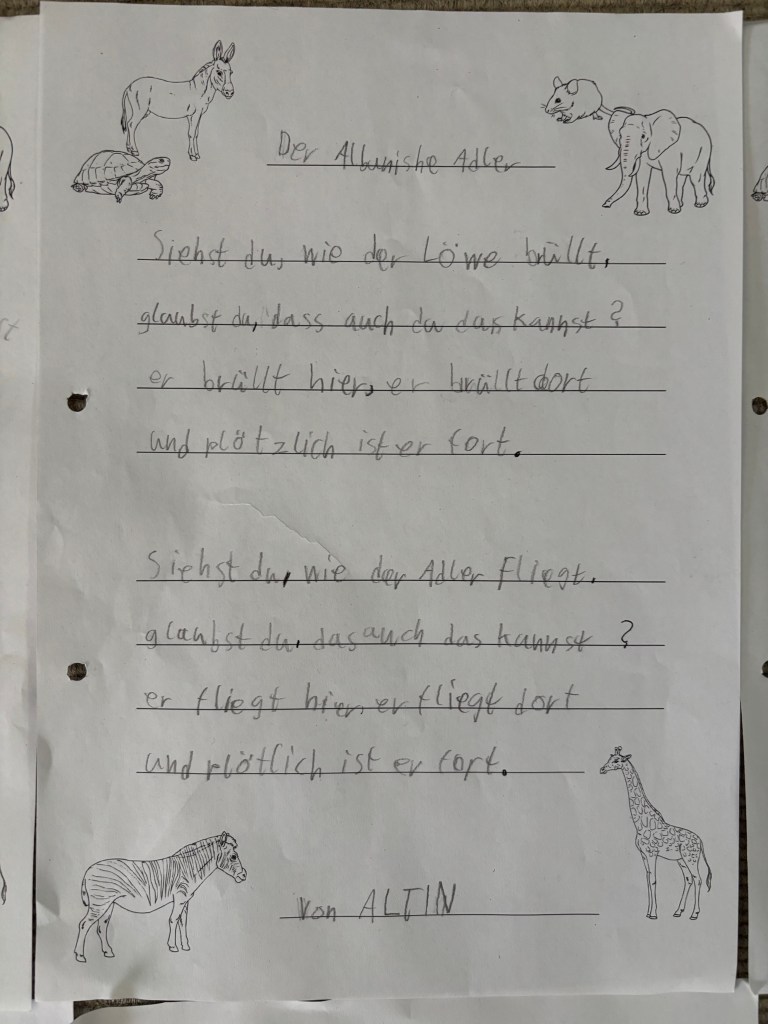 Der Albanishe Adler
Siehst du, wie der Löwe brüllt,
glaubst du, dass auch du das kannst?
er brüllt hier, er brüllt dort
und plötzlich ist er fort.
Siehst du, wie der Adler fliegt.
glaubst du, das auch das kannst?
er fliegt hier, er fliegt dort
und plötlich ist er fort.
von ALTIN